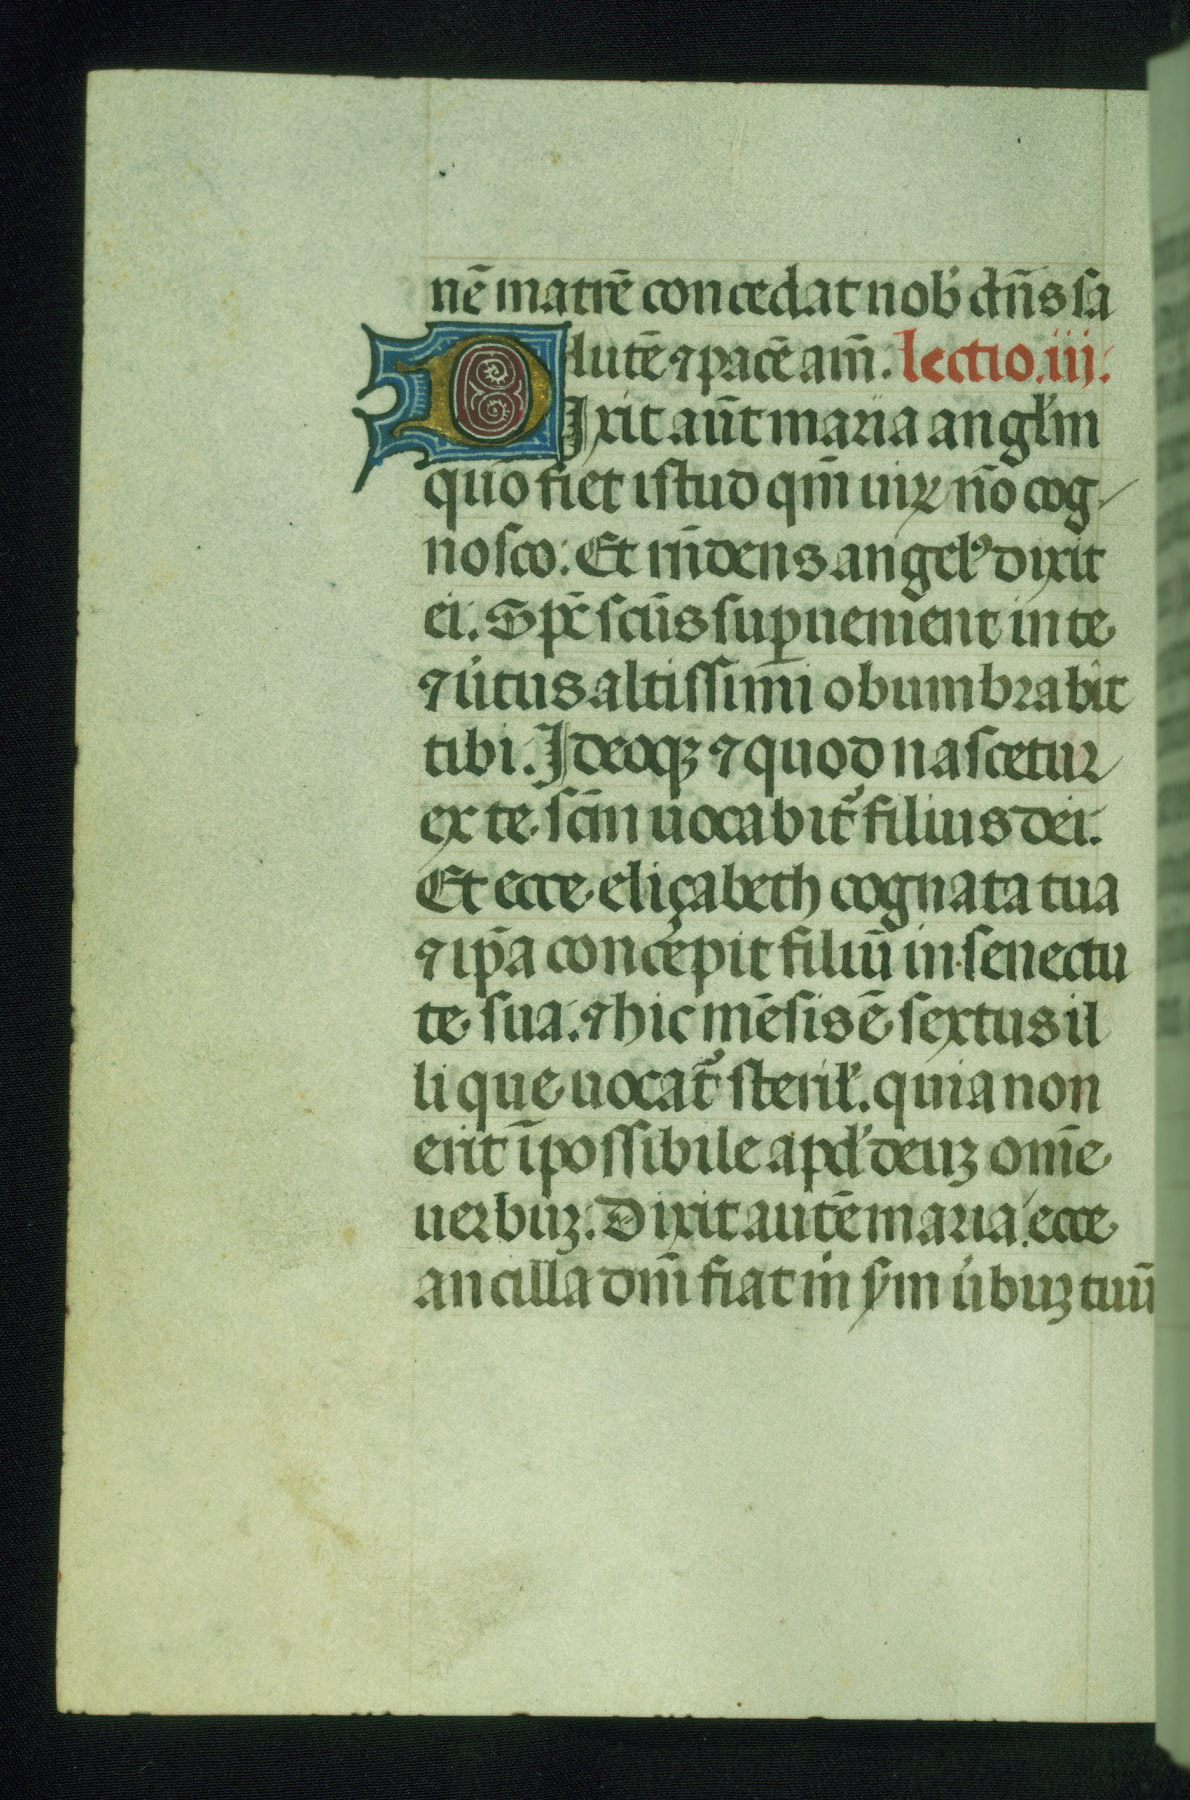 nē matrē concedat nob̕ dn̄s sa
lutē ⁊ pacē am̄. lectio.iij.
Dixit aūt maria angl̕m
quō fiet istud qm̄ uiꝝ nō cog
nosco. Et rn̄dens angelꝰ dixit
ei. Spc̄ scūs suꝑuenient in te
⁊ u̕tus altissimi obumbrabit
tibi. Ideoqꝫ ⁊ quod nascetur
ex te scm̄ uocabit᷑ filius dei.
Et ecce eliçabeth cognata tua
⁊ ip̄a concepit filiū in senectu
te sua. ⁊ hic mēsis ē sextus il
li que uocat᷑ steril̕. quia non
erit īpossibile apd̕ deuꝫ om̄e
uerbuꝫ. Dixit autē maria. ecce
ancilla dn̄i fiat m̕ sm̕ u̕buꝫ tuū